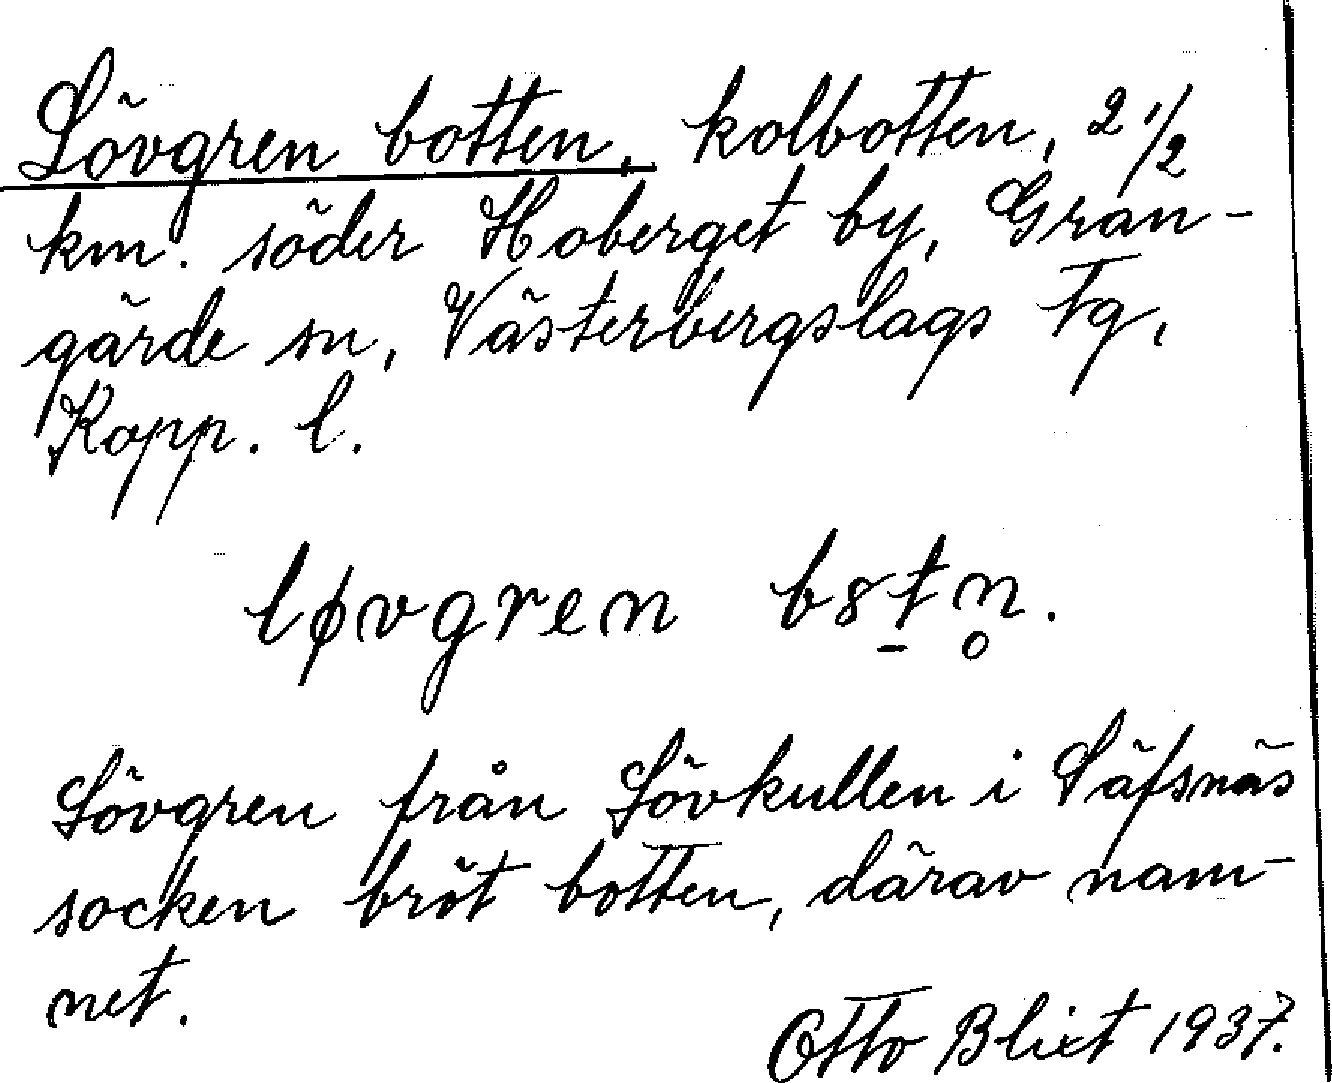 Lövgren botten, kolbotten, 2 1/2
km. söder Hoberget by, Gran-
gärde sn, Västerbergslags Fg,
Kopp. l.
løvgren bst̠n̥.
Lövgren från Lövkullen i Säfsnäs
socken bröt botten, därav nam-
net.
Otto Blixt 1937.